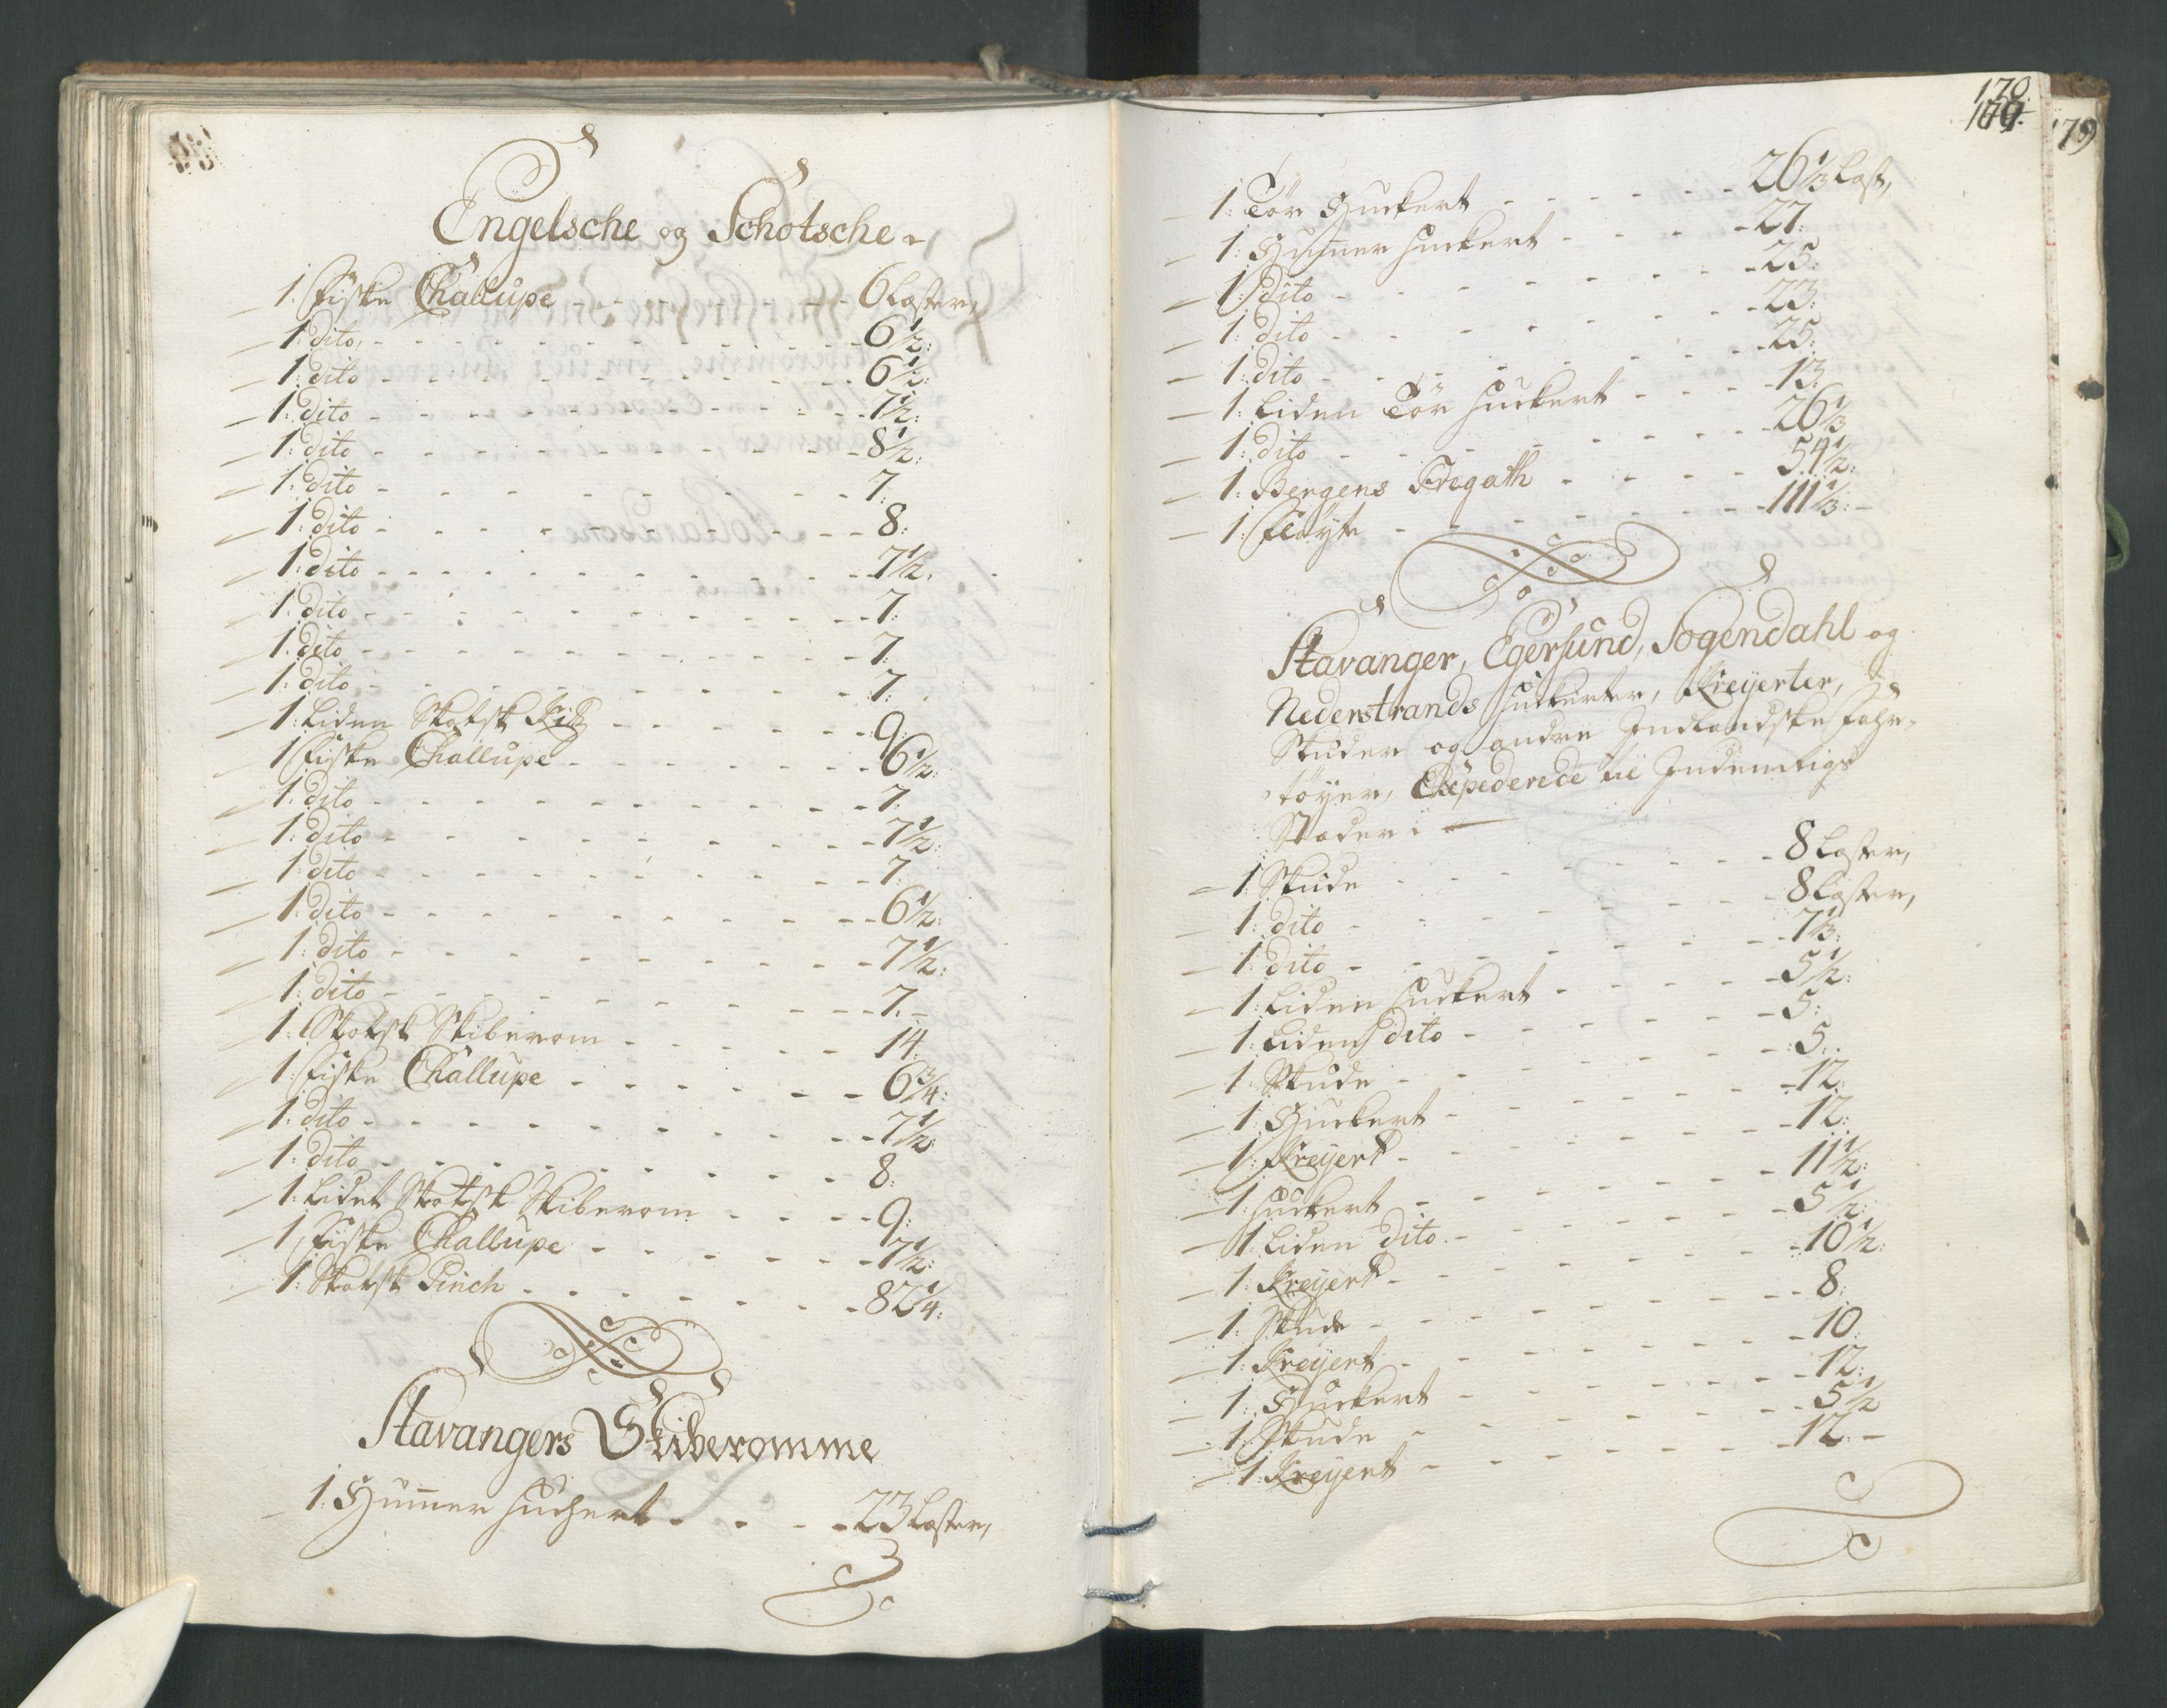 Engelsche og Schotsche
1. Fiske Challupe - - - 6 Laster,
1. dito, - - - 6 1/2:
1. dito - - - 6 1/2:
1. dito - - - 7 1/2:
1. dito - - - 8 1/2:
1. dito - - - 7.
1. dito - - - 8:
1. dito - - - 7 1/2.
1. dito - - - 7:
1. dito - - - 7.
1. dito - - - 7.
1. Liden Skotsk - - - 9.
1. Fiske Challupe - - - 6 1/2:
1. dito - - - 7.
1. dito - - - 7 1/2:
1. dito - - - 7.
1. dito - - - 6 1/2:
1. dito - - - 7 1/2:
1. dito - - - 7. -
1. Skotsk Skiberom - - - 14.
1. Fiske Challupe - - - 6 3/4:
1. dito - - - 7 1/2:
1. dito - - - 8.
1. Lidet Skotsk Skiberom - - - 9:
1. Fiske Challupe - - - 7 1/2:
1. Skotsk Pinch - - - 82 1/4:
Stavangers Skiberomme
1. Hummer Huchert - - - 23 Laster,
170.
179
1. Tör Huckert - - - 26 1/3 Last,
1. Hummer Huckert - - - 27.
1. dito - - - 25:
1. dito - - - 23:
1. dito - - - 25:
1. Liden Tör Huckert - - - 13.
1. dito - - - 26 1/3
1. Bergens Fregath - - - 54 1/2:
1. Fløyte - - - 111 1/3: -
Stavanger, Egersund, Sogendahl og
Nederstrands Huckerter, Kreyerter,
Skuder og andre Indlandske Fahr-
töyer, Expederede til Indenrigs
Stæder:
1. Skude - - - 8 Laster,
1. dito - - - 8 Laster,
1. dito - - - 7 1/3:
1. Liden Huckert - - - 5 1/2:
1. Liden dito - - - 5:
1. Skude - - - 5:
1. Huckert - - - 12.
1. Kreyert - - - 12:
1. Huckert - - - 11 1/2:
1. Liden dito - - - 5 1/2:
1. Kreyert - - - 10 1/2:
1. Skude - - - 8:
1. Kreyert - - - 10
1. Huckert - - - 12:
1. Skude - - - 5 1/2
1. Kreyert - - - 12: -